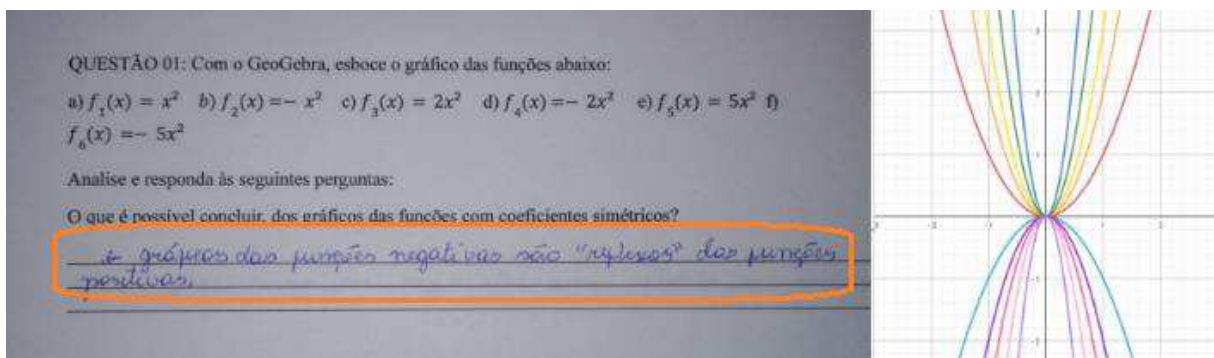 QUESTÃO 01: Com o GeoGebra, esboce o gráfico das funções abaixo:
a) f₁(x) = x² b) f₂(x) =− x² c) f₃(x) = 2x² d) f₄(x) =− 2x² e) f₅(x) = 5x² f)
f₆(x) =− 5x²
Analise e responda às seguintes perguntas:
O que é possível concluir, dos gráficos das funções com coeficientes simétricos?
gráficos das funções negativas são "reflexos" das funções
positivas.